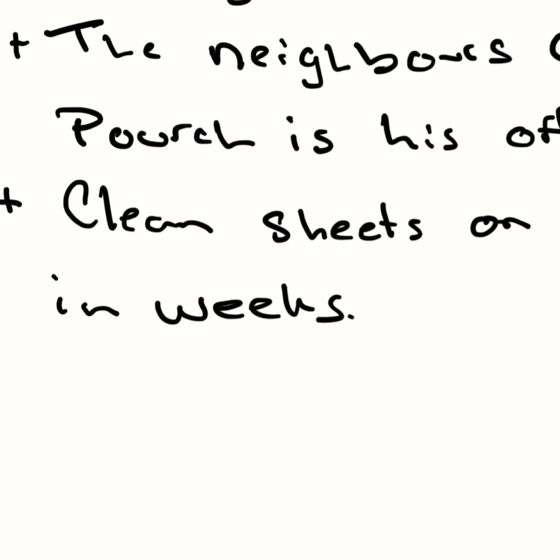 + The neighbours
Pourch is his of
+ Clean sheets on
in weeks.